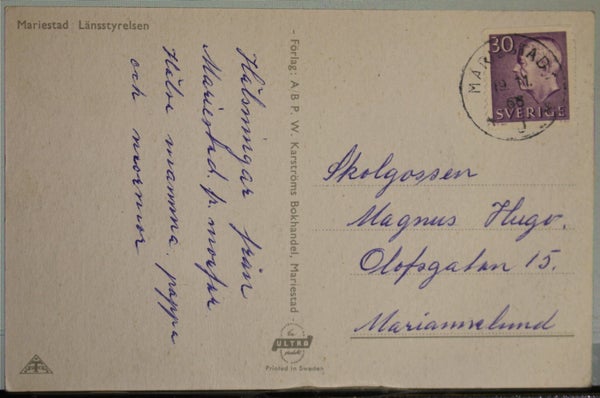 Mariestad Länsstyrelsen
Hälsningar från
Mariestad fr. morfar
Hälsa mamma, pappa
och mormor
- Förlag: A B P. W. Karströms Bokhandel, Mariestad -
ULTRA
Printed in Sweden
30
SVERIGE
MARIESTAD
Skolgossen
Magnus Hugo.
Olofsgatan 15.
Mariannelund